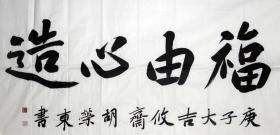 福由心造
庚子大吉攸齋胡榮東書